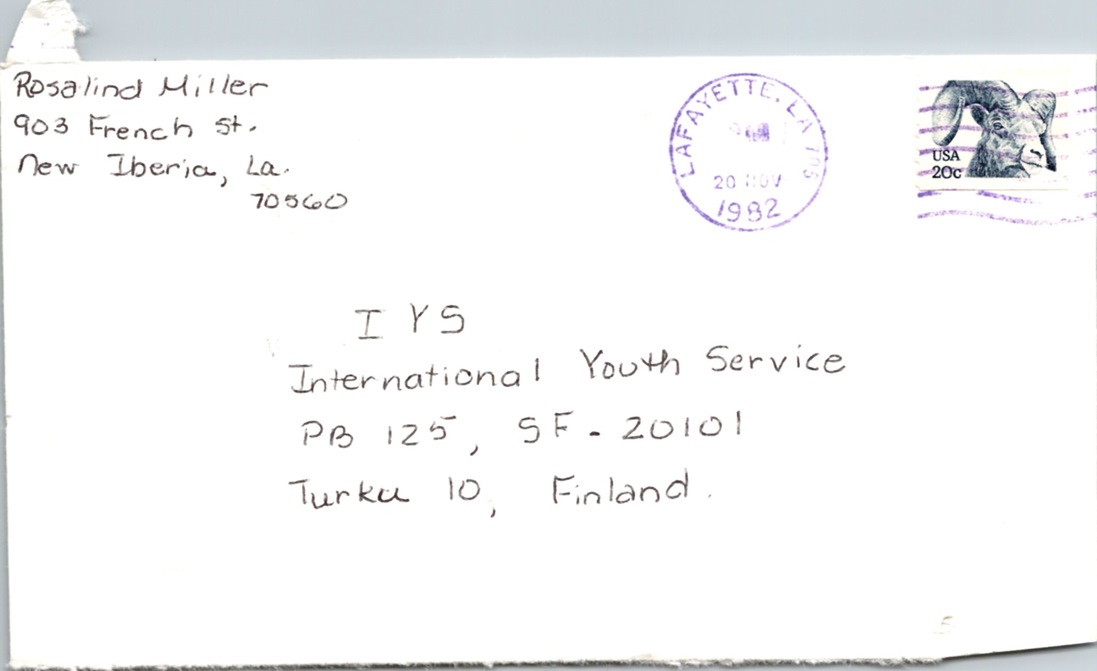 Rosalind Miller
903 French St.
New Iberia, La.
70560
LAFAYETTE, LA 705
20 NOV
1982
USA
20c
I Y S
International Youth Service
PB 125, SF - 20101
Turku 10, Finland.